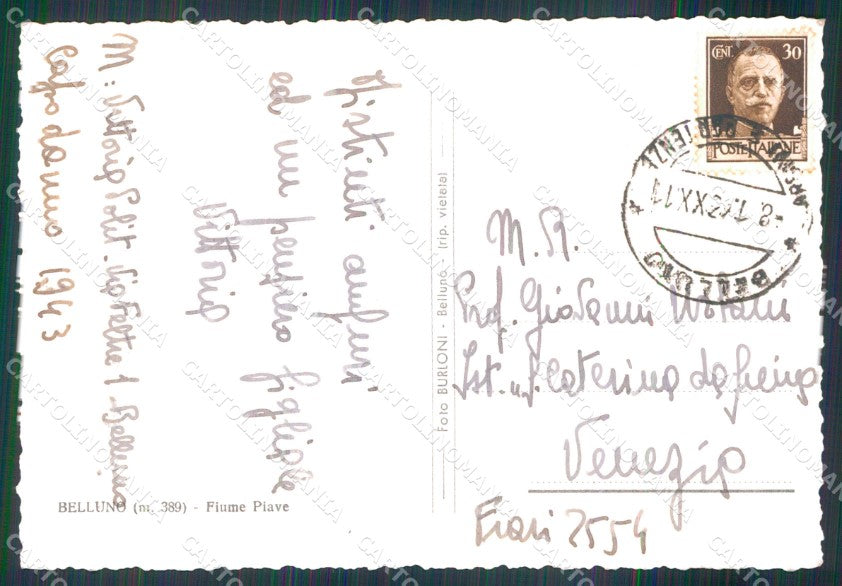 Distinti auguri
ed un pensiero figliale
Vittorio
M: Vittorio Polit. Via Feltre 1 Belluno
Capodanno 1943
BELLUNO (m. 389) - Fiume Piave
Foto BURLONI - Belluno - (rip. vietata)
CENT. 30
POSTE ITALIANE
BELLUNO
ARRIVI E PARTENZE
M. R.
Prof. Giovanni
Ist. S. Caterina da Siena
Venezia
Frari 2554
CARTOLINOMANIA